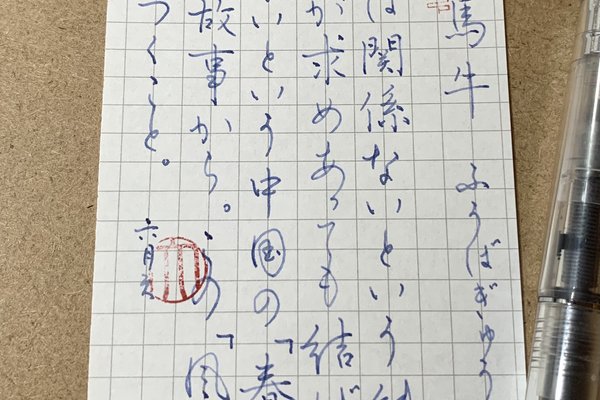 馬牛 ふうばぎゅう
は関係ないという
が求めあっても結ば
いという中国の「春
故事から。この「風
つくこと。
六月